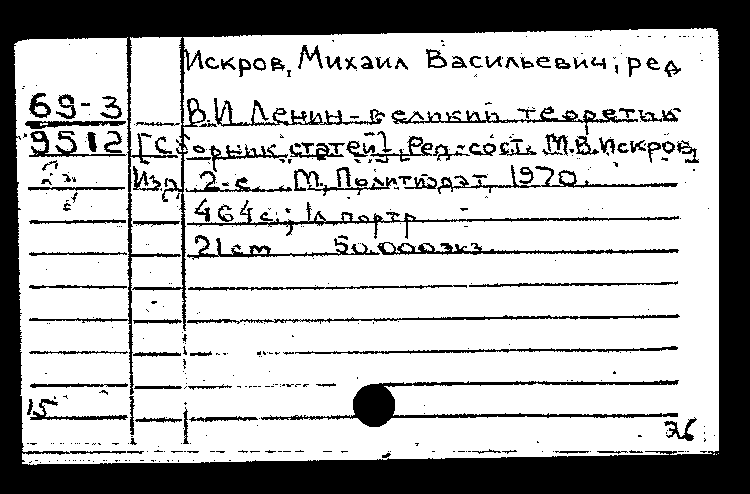 Искров, Михаил Васильевич, ред
69-3 В.И Ленин-великий теоретик
9512 [Сборник статей]. Ред.-сост. М.В.Искров,
Изд 2-е. М, Политиздат, 1970.
464с.; 1л портр
21cm 50.000экз.
15
26